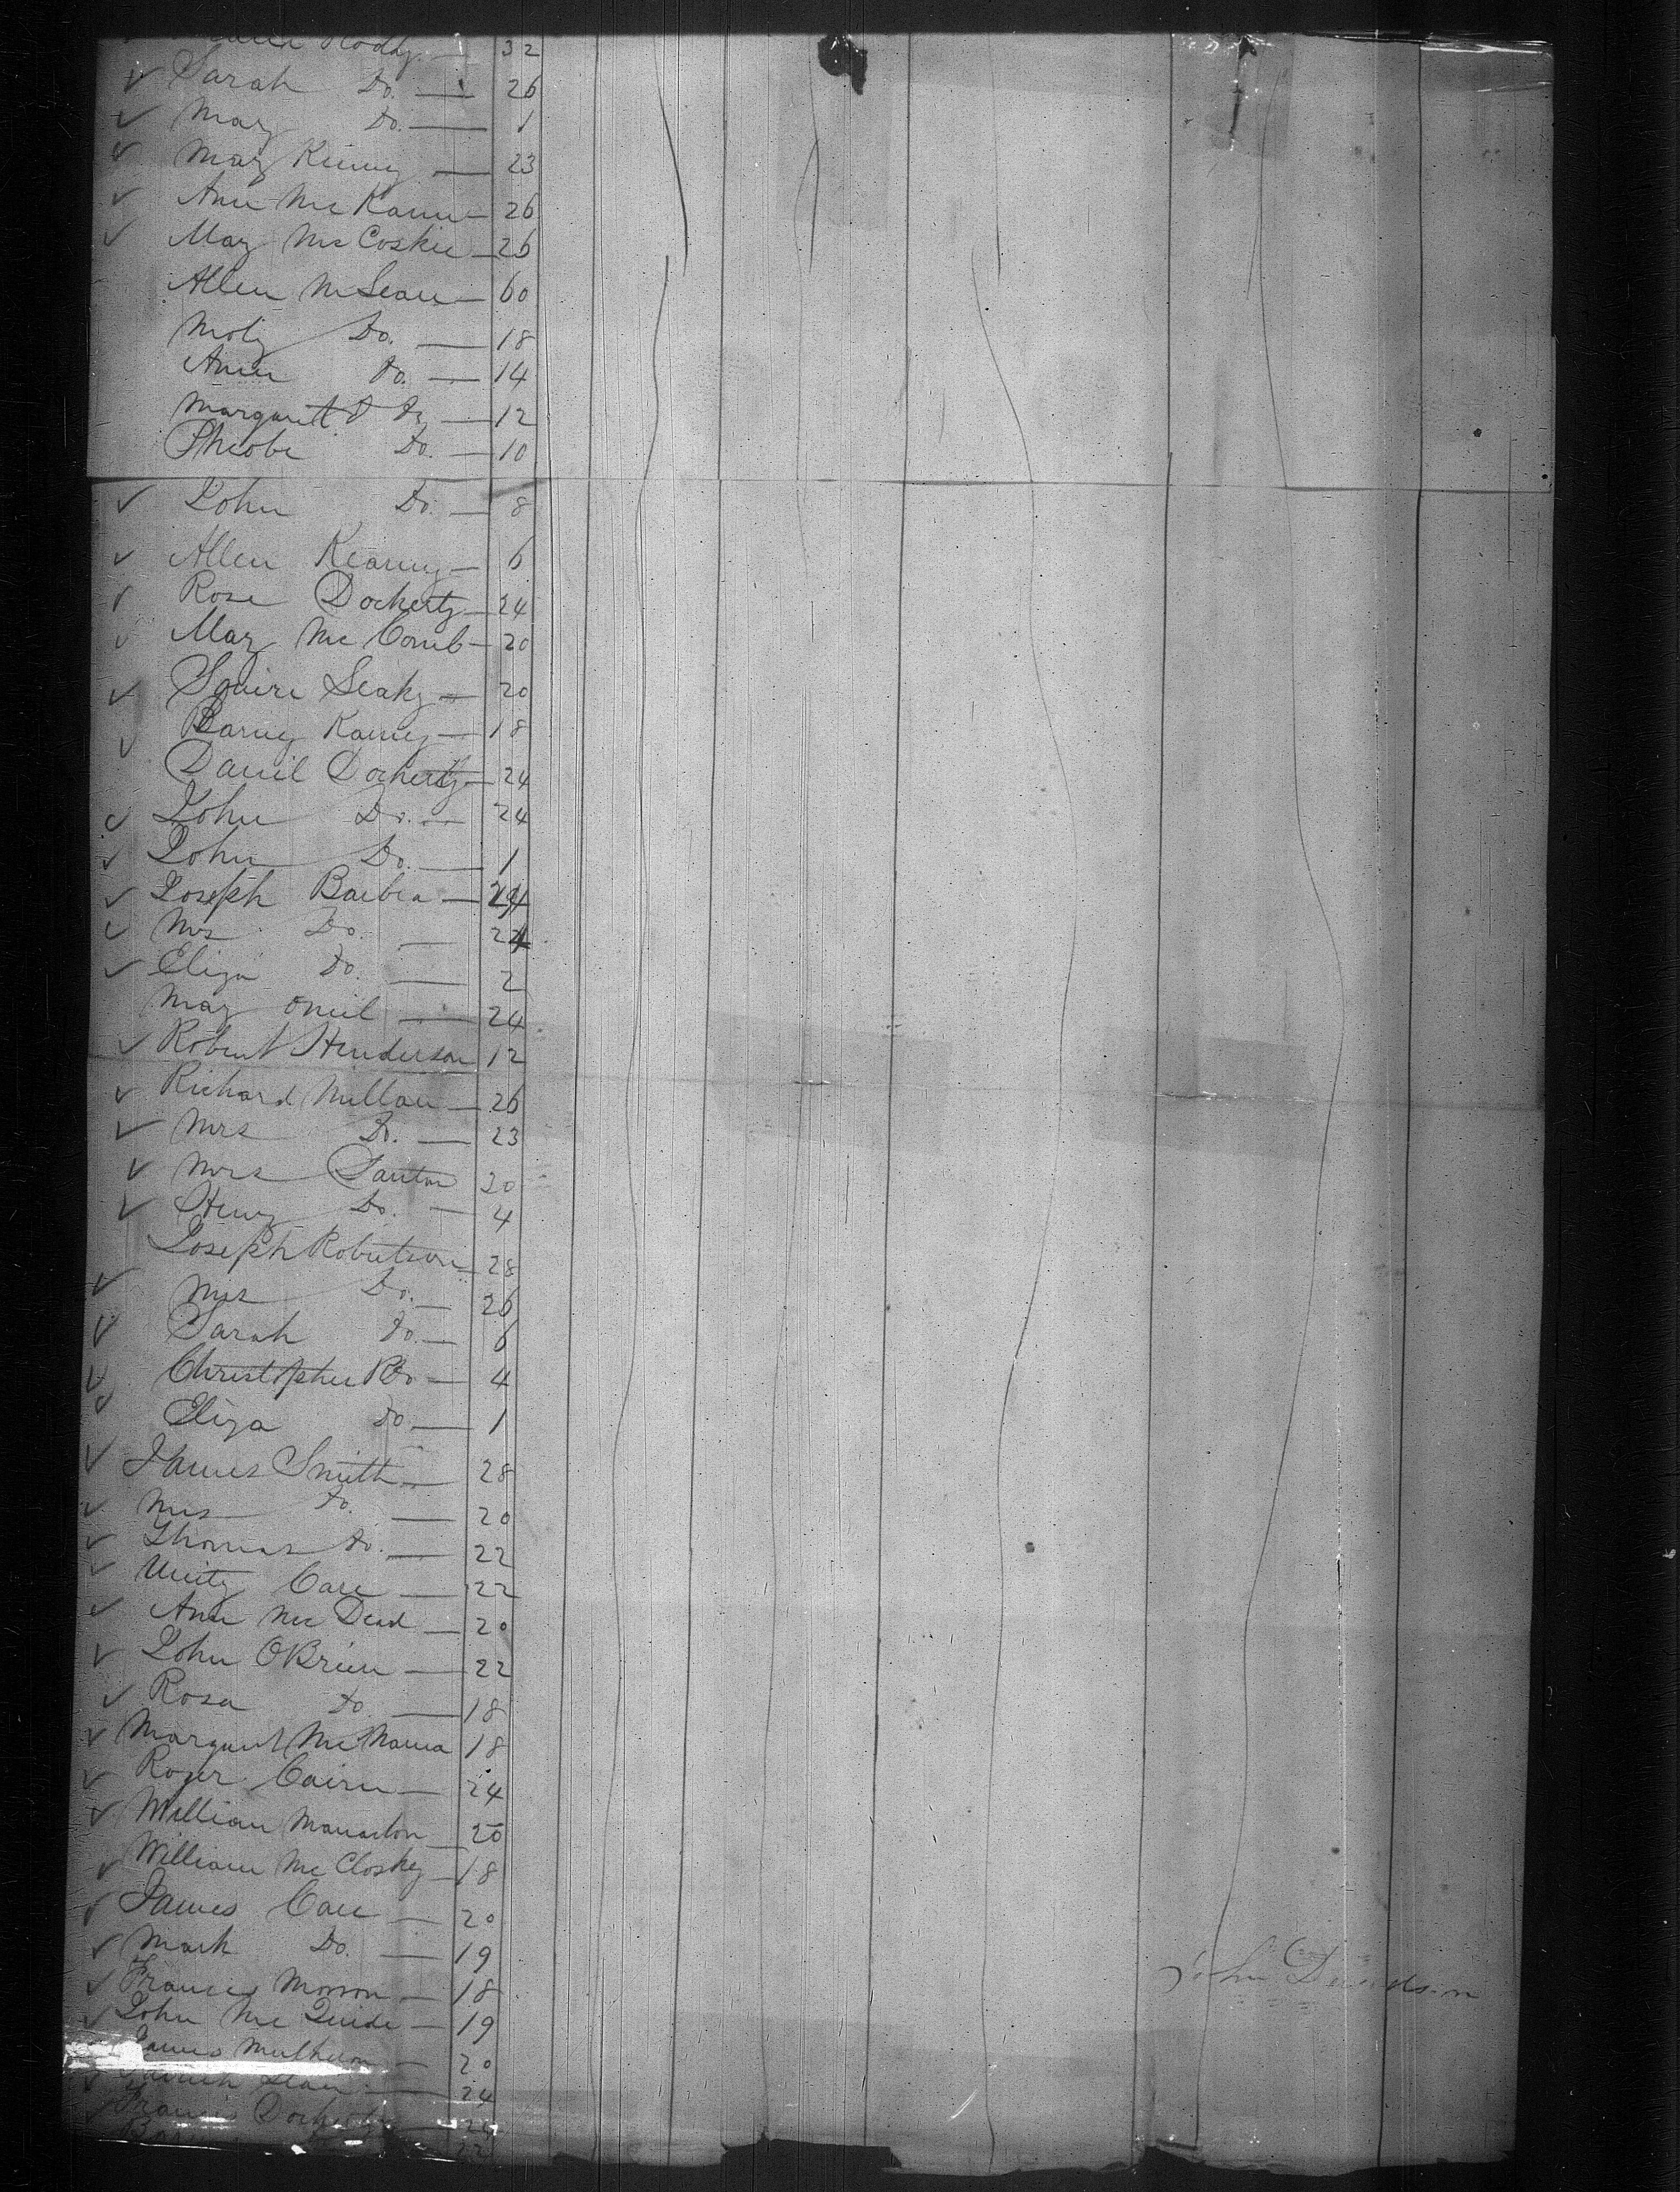 Roddy — 32
Sarah Do. — 26
Mary Do. — 1
Mary Kinny — 23
Ann McKann — 26
Mary McCoskie — 26
Allen McLean — 60
Moly Do. — 18
Ann Do. — 14
Margarett Do — 12
Pheobe Do. — 10
John Do. — 8
Allen Kearny — 6
Rose Dockerty — 24
Mary McComb — 20
Squire Leaky — 20
Barny Karny — 18
Daniel Dockerty — 24
John Do. — 24
John Do. — 1
Joseph Barbra — 24
Mrs Do. — 24
Eliza Do. — 2
Mary Oneil — 24
Robert Henderson 12
Richard Millan — 26
Mrs Do. — 23
Mrs Santon 20
Henry Do. — 4
Joseph Robertson — 28
Mrs Do. — 26
Sarah Do. — 6
Christopher R Do — 4
Eliza Do — 1
James Smith — 28
Mrs Do. — 20
Thomas Do. — 22
Unity Carr — 22
Ann McDead — 20
John OBrien — 22
Rosa Do — 18
Margaret McNama 18
Roger Cairn — 24
William Manaston — 20
William McClosky — 18
James Carr — 20
Mark Do. — 19
Francis Morson — 18
John McQuide — 19
James Mulhern — 20
— 24
Francis Dockerty — 24
22
John Davidson